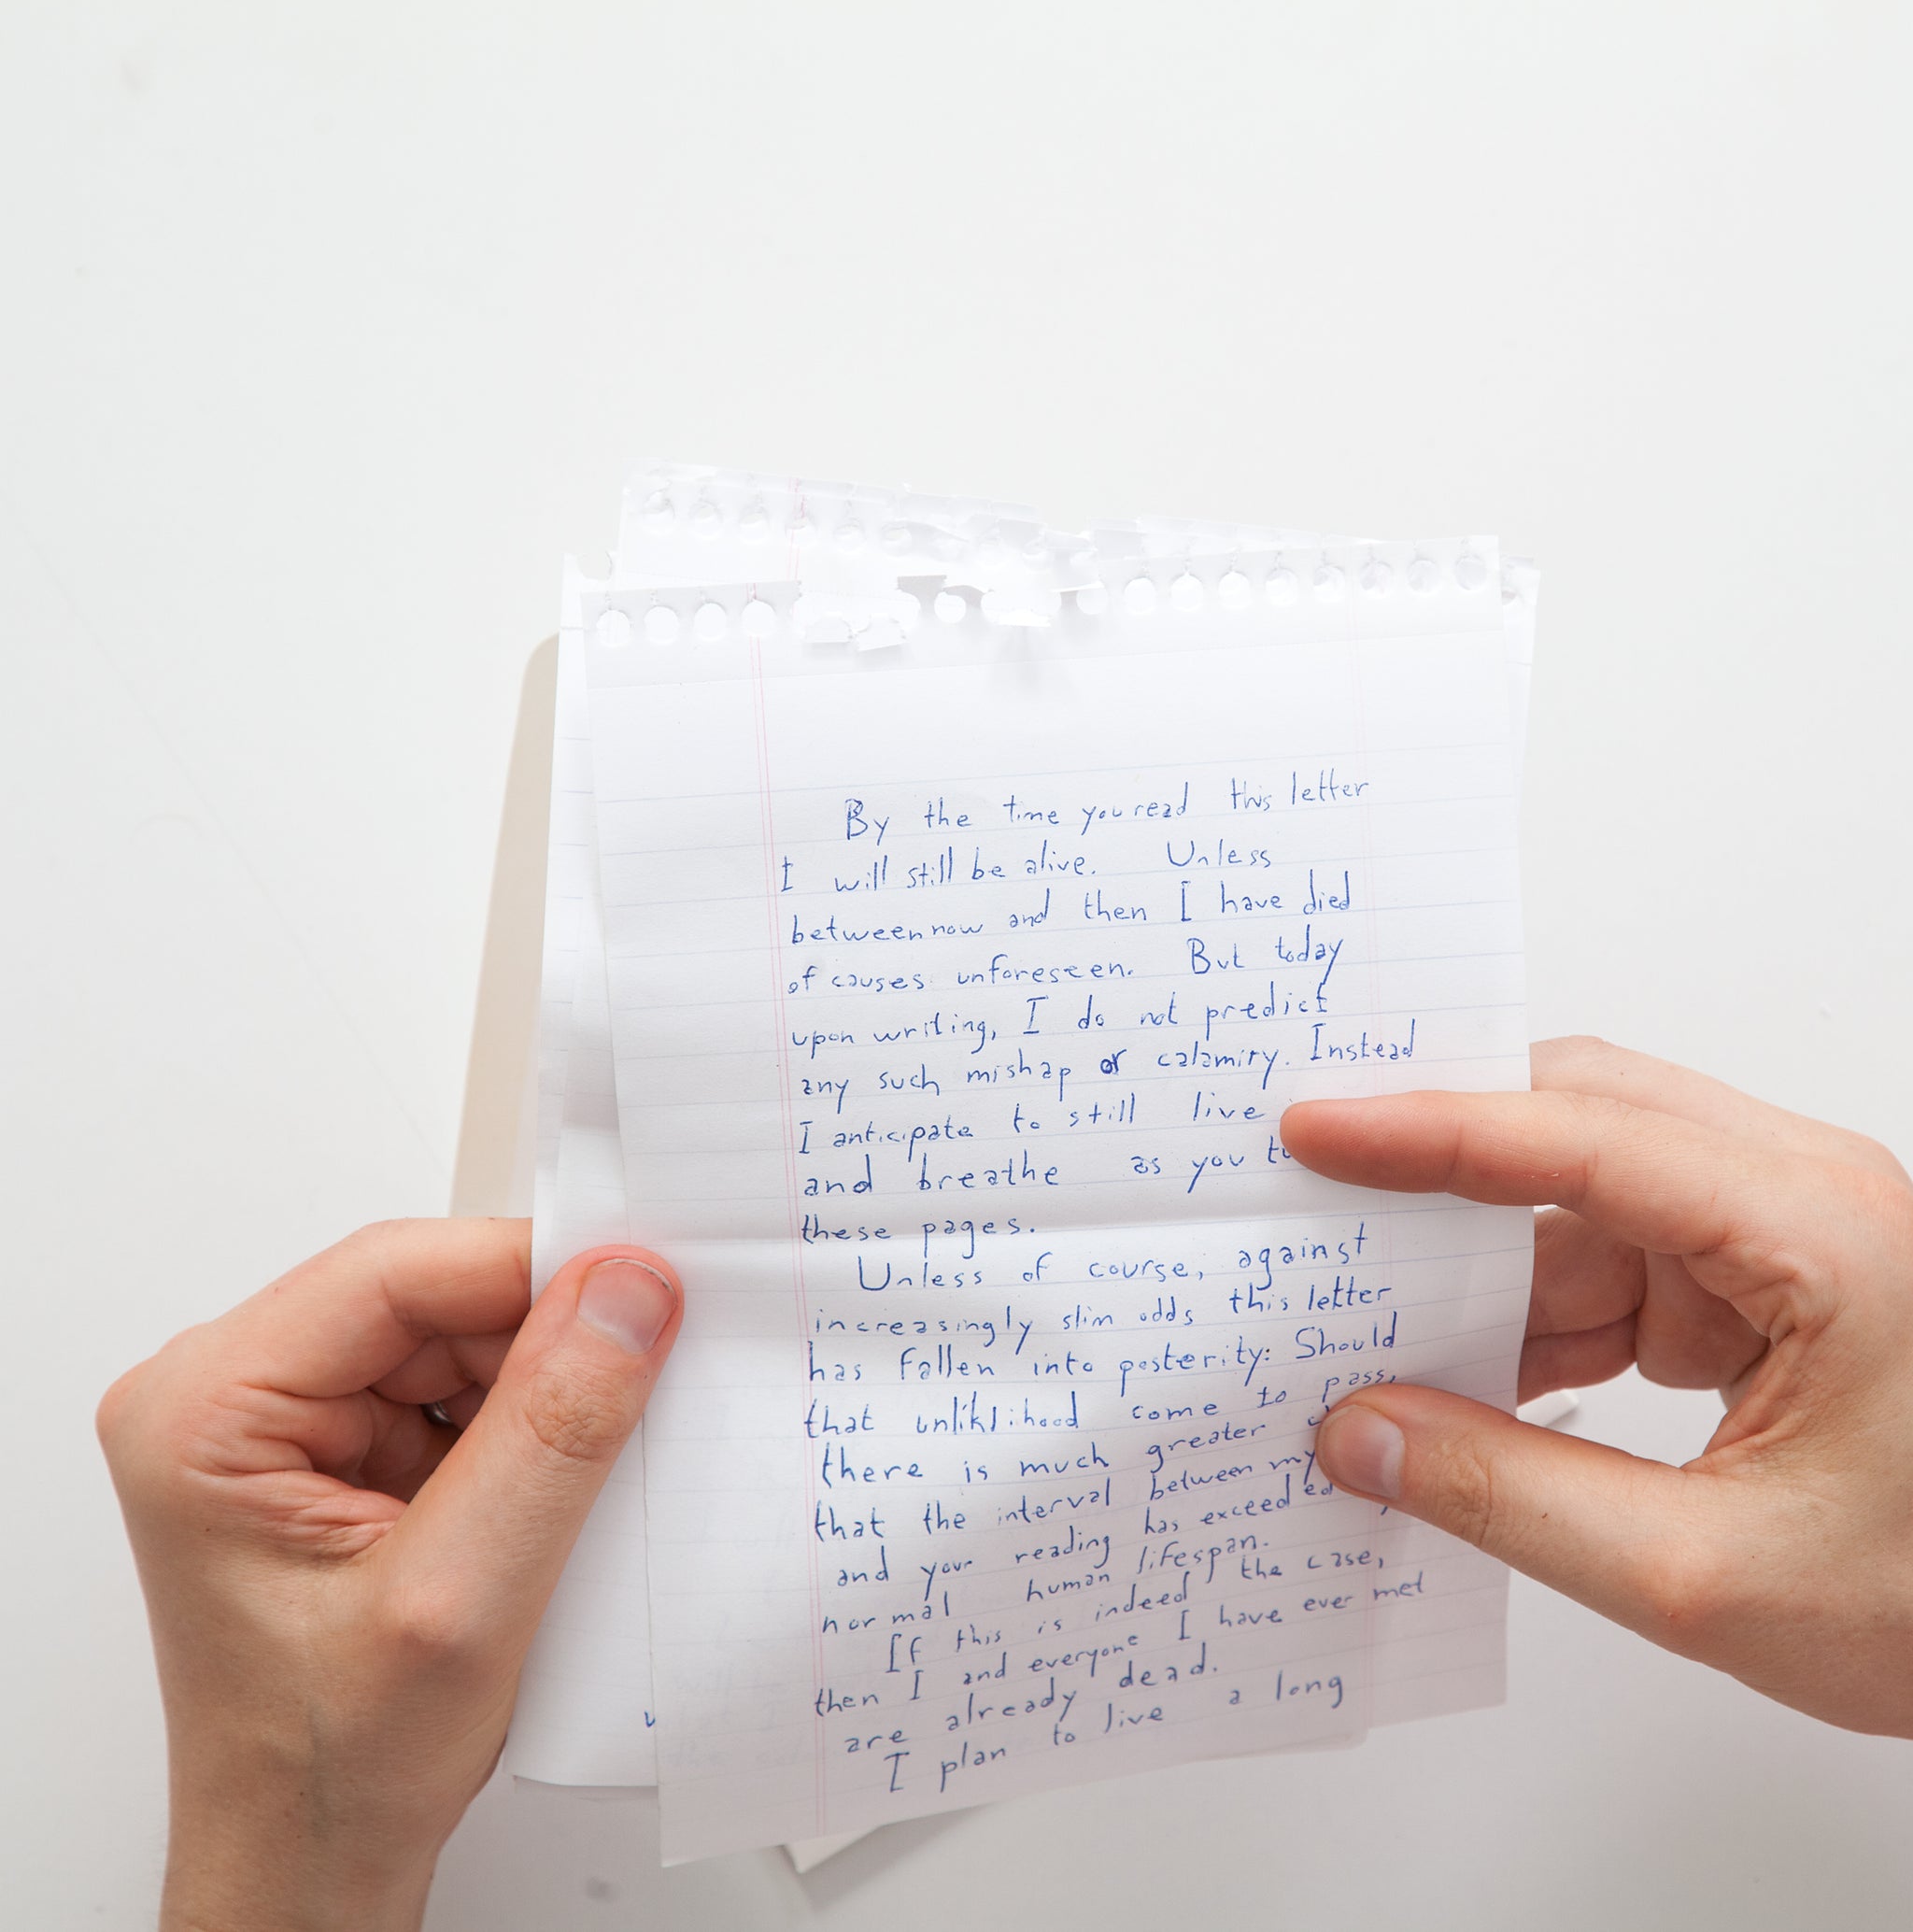 By the time you read this letter
I will still be alive. Unless
between now and then I have died
of causes unforeseen. But today
upon writing, I do not predict
any such mishap or calamity. Instead
I anticipate to still live
and breathe as you
these pages.
Unless of course, against
increasingly slim odds this letter
has fallen into posterity: Should
that unliklihood come to pass,
there is much greater
that the interval between my
and your reading has exceeded
normal human lifespan.
If this is indeed the case,
then I and everyone I have ever met
are already dead.
I plan to live a long